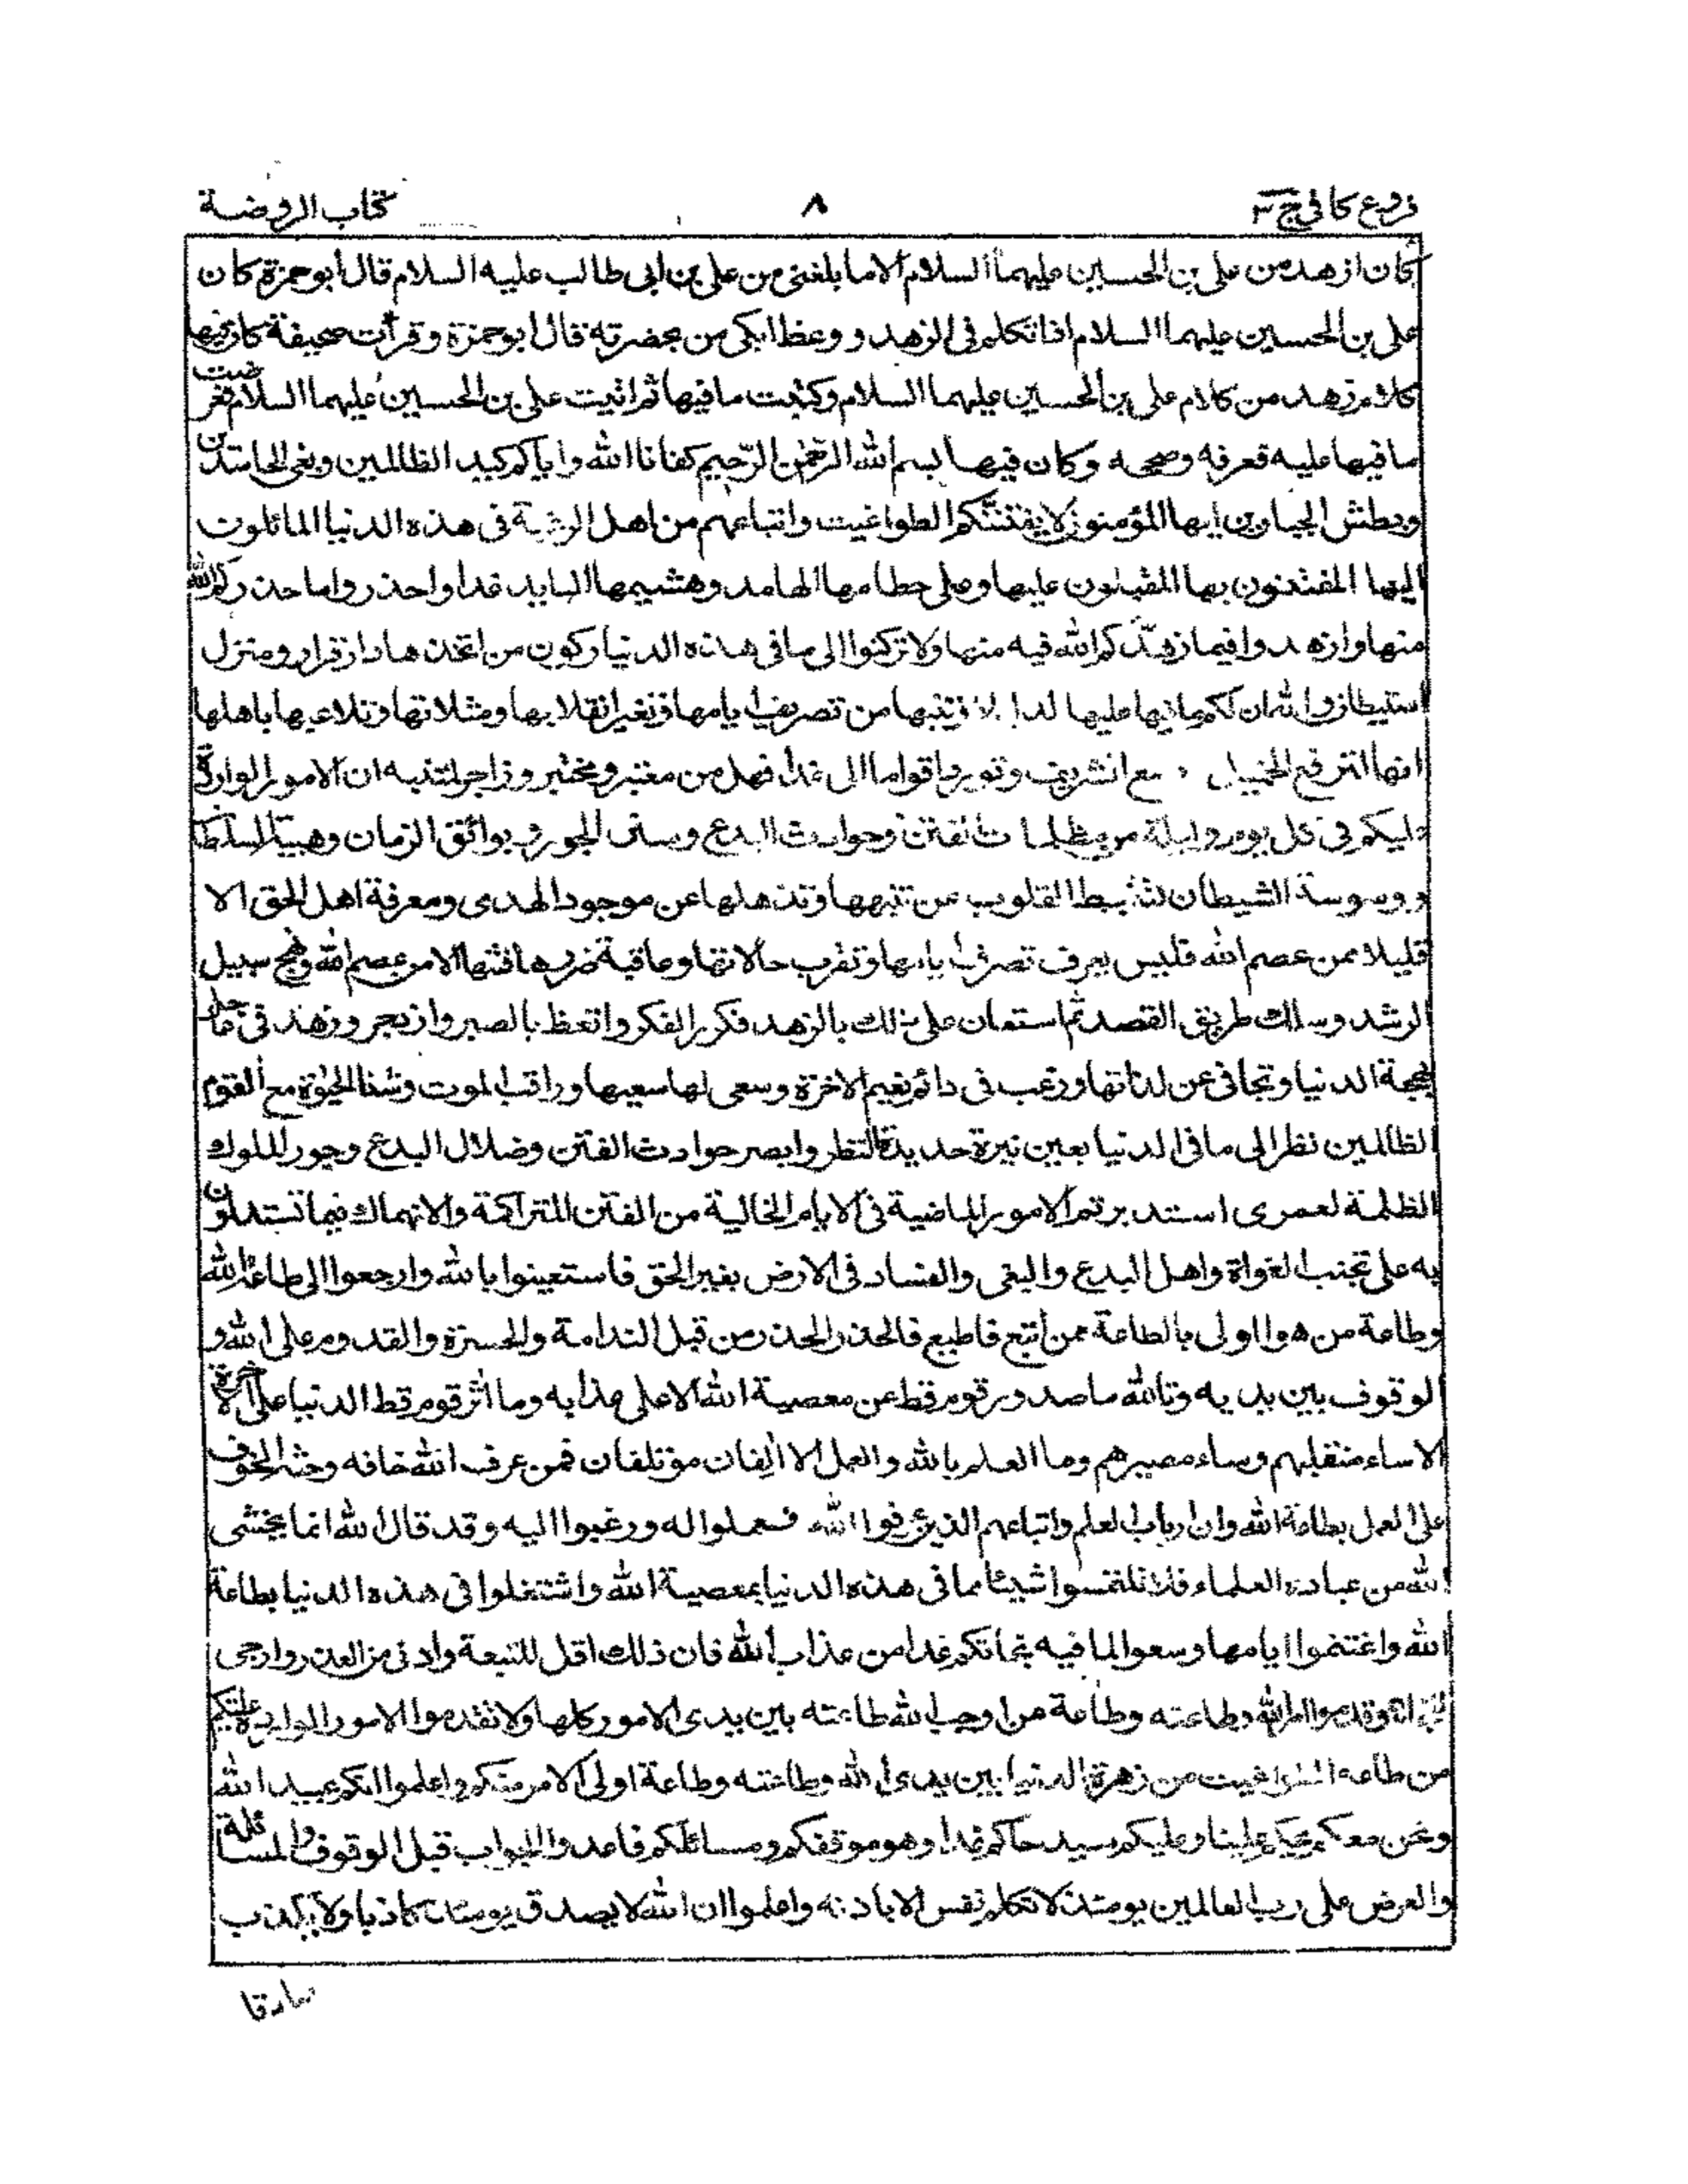 فروع كافى ج ٣ ٨ كتاب الروضة
كان ازهد من على بن الحسين عليهما السلام الا ما بلغنى من على بن ابى طالب عليه السلام قال ابو حمزة كان
على بن الحسين عليهما السلام اذا تكلم فى الزهد ووعظ ابكى من بحضرته قال ابو حمزة وقرأت صحيفة كان فيها
كلام زهد من كلام على بن الحسين عليهما السلام وكتبت ما فيها ثم اتيت على بن الحسين عليهما السلام فعرضت
ما فيها عليه فعرفه وصححه وكان فيها بسم الله الرحمن الرحيم كفانا الله واياكم كيد الظالمين وبغى الحاسدين
وبطش الجبارين ايها المؤمنون لا يفتننكم الطواغيت واتباعهم من اهل الرغبة فى هذه الدنيا المائلون
اليها المفتتنون بها المقبلون عليها وعلى حطامها الهامد وهشيمها البايد غدا واحذروا ما حذركم الله
منها وازهدوا فيما زهدكم الله فيه منها ولا تركنوا الى ما فى هذه الدنيا ركون من اتخذها دار قرار ومنزل
استيطان والله ان لكم مما فيها عليها لدليلا وتنبيها من تصريف ايامها وتغير انقلابها ومثلاتها وتلاعبها باهلها
انها لترفع الخميل وتضع الشريف وتورد اقواما الى غدا فهل من معتبر ومختبر وزاجر لمنتبه ان الامور الواردة
عليكم فى كل يوم وليلة من مظلمات الفتن وحوادث البدع وسنن الجور وبوائق الزمان وهيبة السلطان
ووسوسة الشيطان لتثبط القلوب عن تنبهها وتذهلها عن موجود الهدى ومعرفة اهل الحق الا
قليلا ممن عصم الله فليس يعرف تصرف ايامها وتقلب حالاتها وعاقبة ضرر فتنتها الا من عصم الله ونهج سبيل
الرشد وسلك طريق القصد ثم استعان على ذلك بالزهد فكرر الفكر واتعظ بالصبر وازدجر وزهد فى عاجل
بهجة الدنيا وتجافى عن لذاتها ورغب فى دائم نعيم الاخرة وسعى لها سعيها وراقب الموت وشنأ الحيوة مع القوم
الظالمين نظر الى ما فى الدنيا بعين نيرة حديدة النظر وابصر حوادث الفتن وضلال البدع وجور الملوك
الظلمة لعمرى استدبرتم الامور الماضية فى الايام الخالية من الفتن المتراكمة والانهماك فيما تستدلون
به على تجنب الغواة واهل البدع والبغى والفساد فى الارض بغير الحق فاستعينوا بالله وارجعوا الى طاعة الله
وطاعة من هو اولى بالطاعة ممن اتبع فاطيع فالحذر الحذر من قبل الندامة والحسرة والقدوم على الله و
الوقوف بين يديه وتالله ما صدر قوم قط عن معصية الله الا على عذابه وما اثر قوم قط الدنيا على الاخرة
الا ساء منقلبهم وساء مصيرهم وما العلم بالله والعمل الا الفان مؤتلفان فمن عرف الله خافه وحثه الخوف
على العمل بطاعة الله وان ارباب العلم واتباعهم الذين عرفوا الله فعملوا له ورغبوا اليه وقد قال الله انما يخشى
الله من عباده العلماء فلا تلتمسوا شيئا مما فى هذه الدنيا بمعصية الله واشتغلوا فى هذه الدنيا بطاعة
الله واغتنموا ايامها وسعوا لما فيه نجاتكم غدا من عذاب الله فان ذلك اقل للتبعة وادنى من العذر وارجى
للنجاة وقدموا امر الله وطاعته وطاعة من اوجب الله طاعته بين يدى الامور كلها ولا تقدموا الامور الواردة عليكم
من طاعة الطواغيت من زهرة الدنيا بين يدى الله وطاعته وطاعة اولى الامر منكم واعلموا انكم عبيد الله
ونحن معكم يحكم علينا وعليكم سيد حاكم غدا وهو موقفكم ومسائلكم فاعدوا الجواب قبل الوقوف والمسائلة
والعرض على رب العالمين يومئذ لا تكلم نفس الا باذنه واعلموا ان الله لا يصدق يومئذ كاذبا ولا يكذب
صادقا